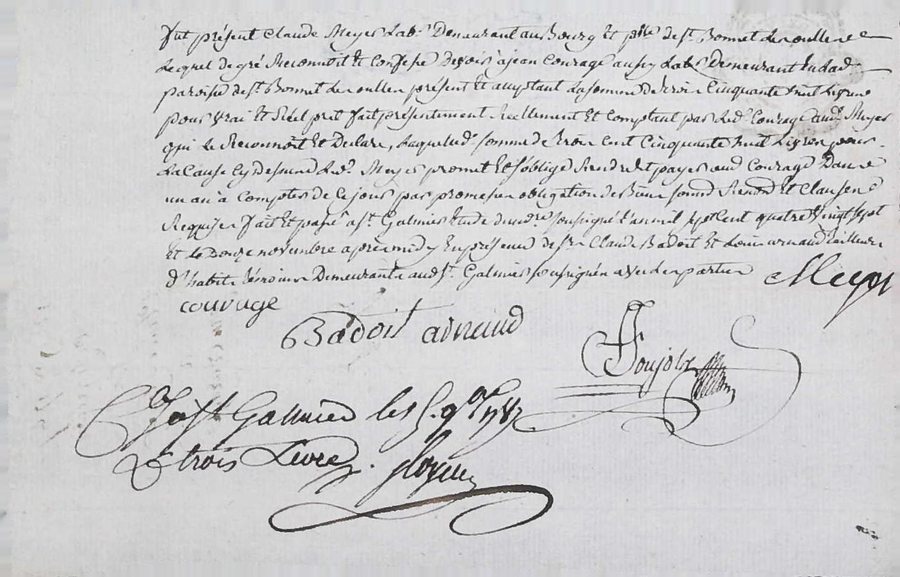 fut présent Claude Meyer Lab.r Demeurant au Bourg Et p.sse de s.t Bonnet Les oulle
Lequel de gré Reconnoit Et Confesse Devoir à jean Courage aussy Lab.r Demeurant En lad
paroisse de s.t Bonnet Les oulles présent Et acceptant La somme de trois Cinquante huit Livres
pour vrai Et Réel prêt fait présentement Réellement Et Comptant par Led. Courage aud. Meyer
qui Le Reconnoit Et Declare, Laquelle d. somme de trois Cent Cinquante huit Livres pour
La Cause Cy Dessus Led. Meyer promet Et s'oblige Rendre Et payer aud Courage Dans
un an à Compter de Ce jour par promesse obligation de Biens soumis Renon Et Clauses
Requises fait Et passé a s.t Galmier Etude du no.re soussigné L'an mil sept Cent quatre vingt sept
Et Le Douze novembre après midy En présence de s.r Claude Badoit Et Arnaud tailleur
d'habits témoins Demeurants aud s.t Galmier soussignés avec Les parties Meyer
courage
Badoit arnaud
C.lé a s.t Galmier les 9.bre 1787
R trois Livres